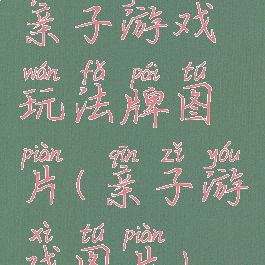 亲子游戏
wán fǎ pái tú
玩法牌图
piàn qīn zǐ yóu
片(亲子游
xì tú piàn
戏图片)